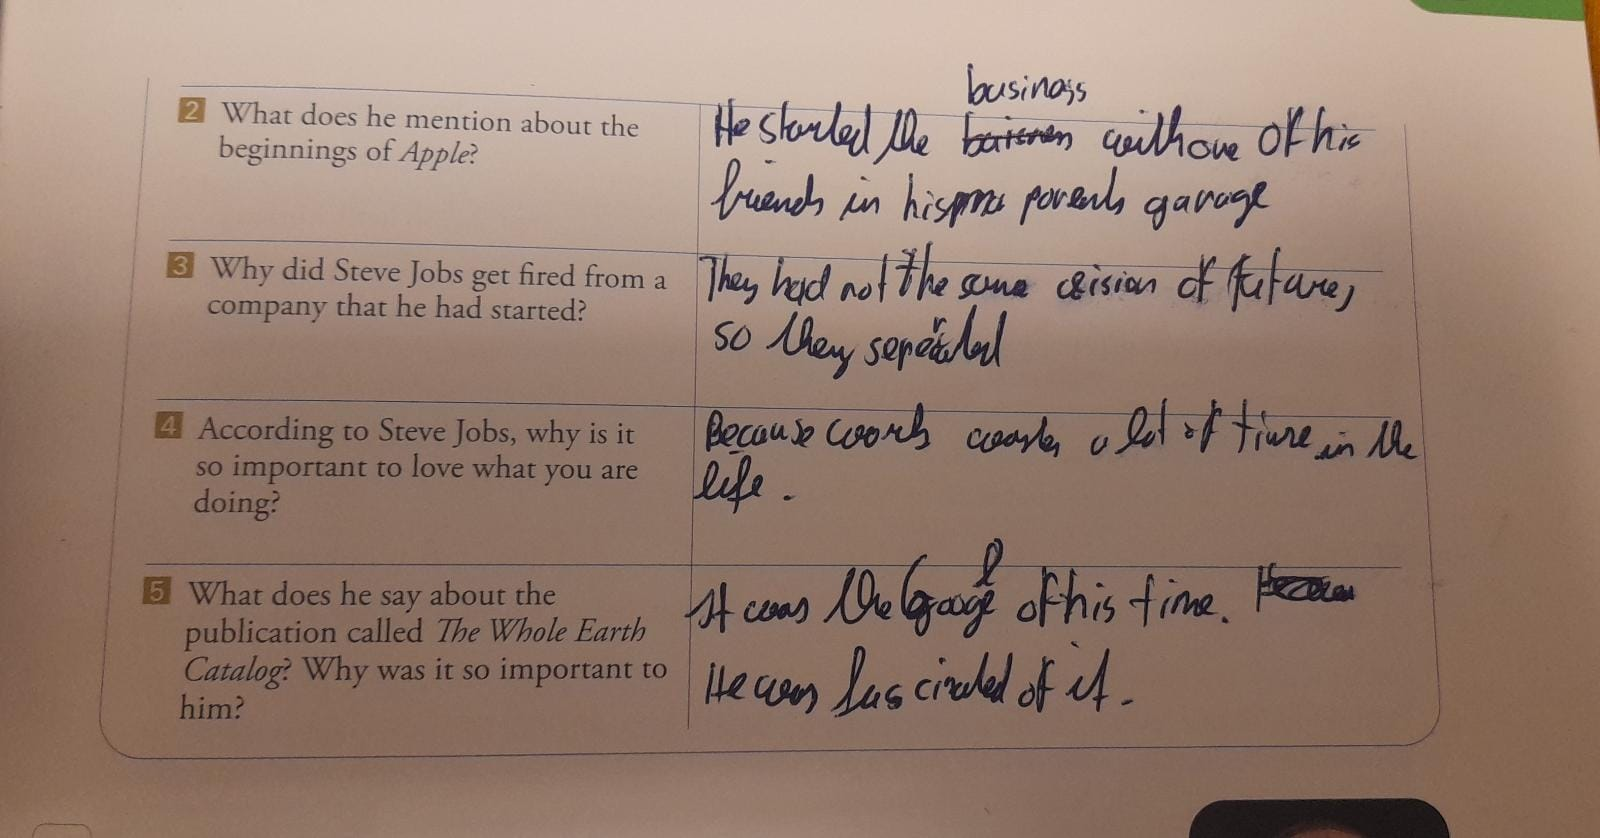 2 What does he mention about the
beginnings of Apple?
business
He started the with one of his
friends in his parents garage
3 Why did Steve Jobs get fired from a
company that he had started?
They had not the same vision of future,
so they seperated
4 According to Steve Jobs, why is it
so important to love what you are
doing?
Because work a lot of time in the
life.
5 What does he say about the
publication called The Whole Earth
Catalog? Why was it so important to
him?
It was the of his time.
He was fascinated of it.